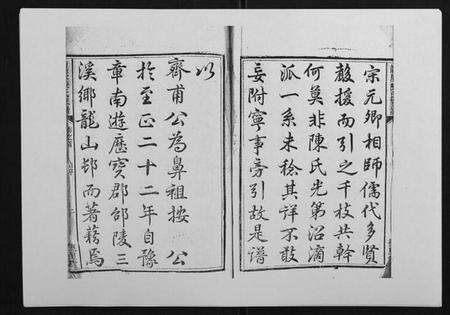 宋元卿相師儒代多賢
散援而引之千枝共幹
何莫非陳氏光第沿滴
派一系未稔其詳不敢
妄附寧事旁引故是譜
以
齊甫公為鼻祖按　公
於至正二十二年自豫
章南遊歷寶郡邵陵三
溪鄉龍山邨而著籍焉